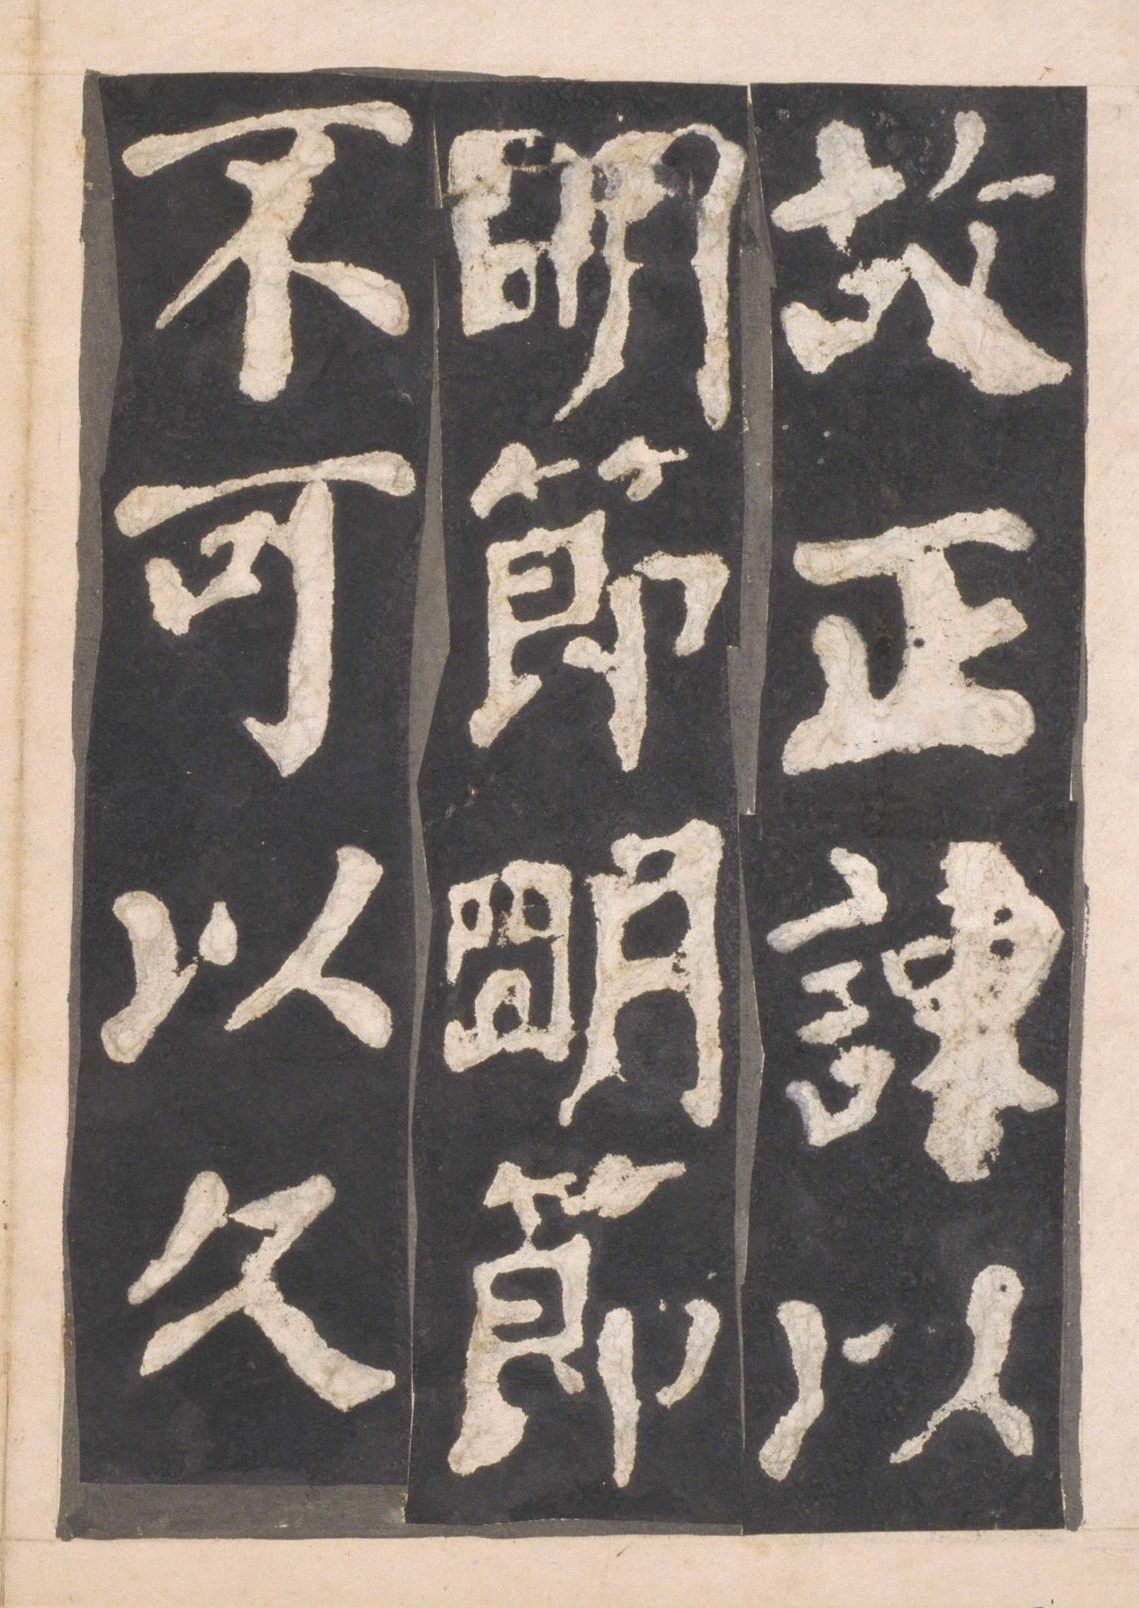 故正諫以
明節明節
不可以久